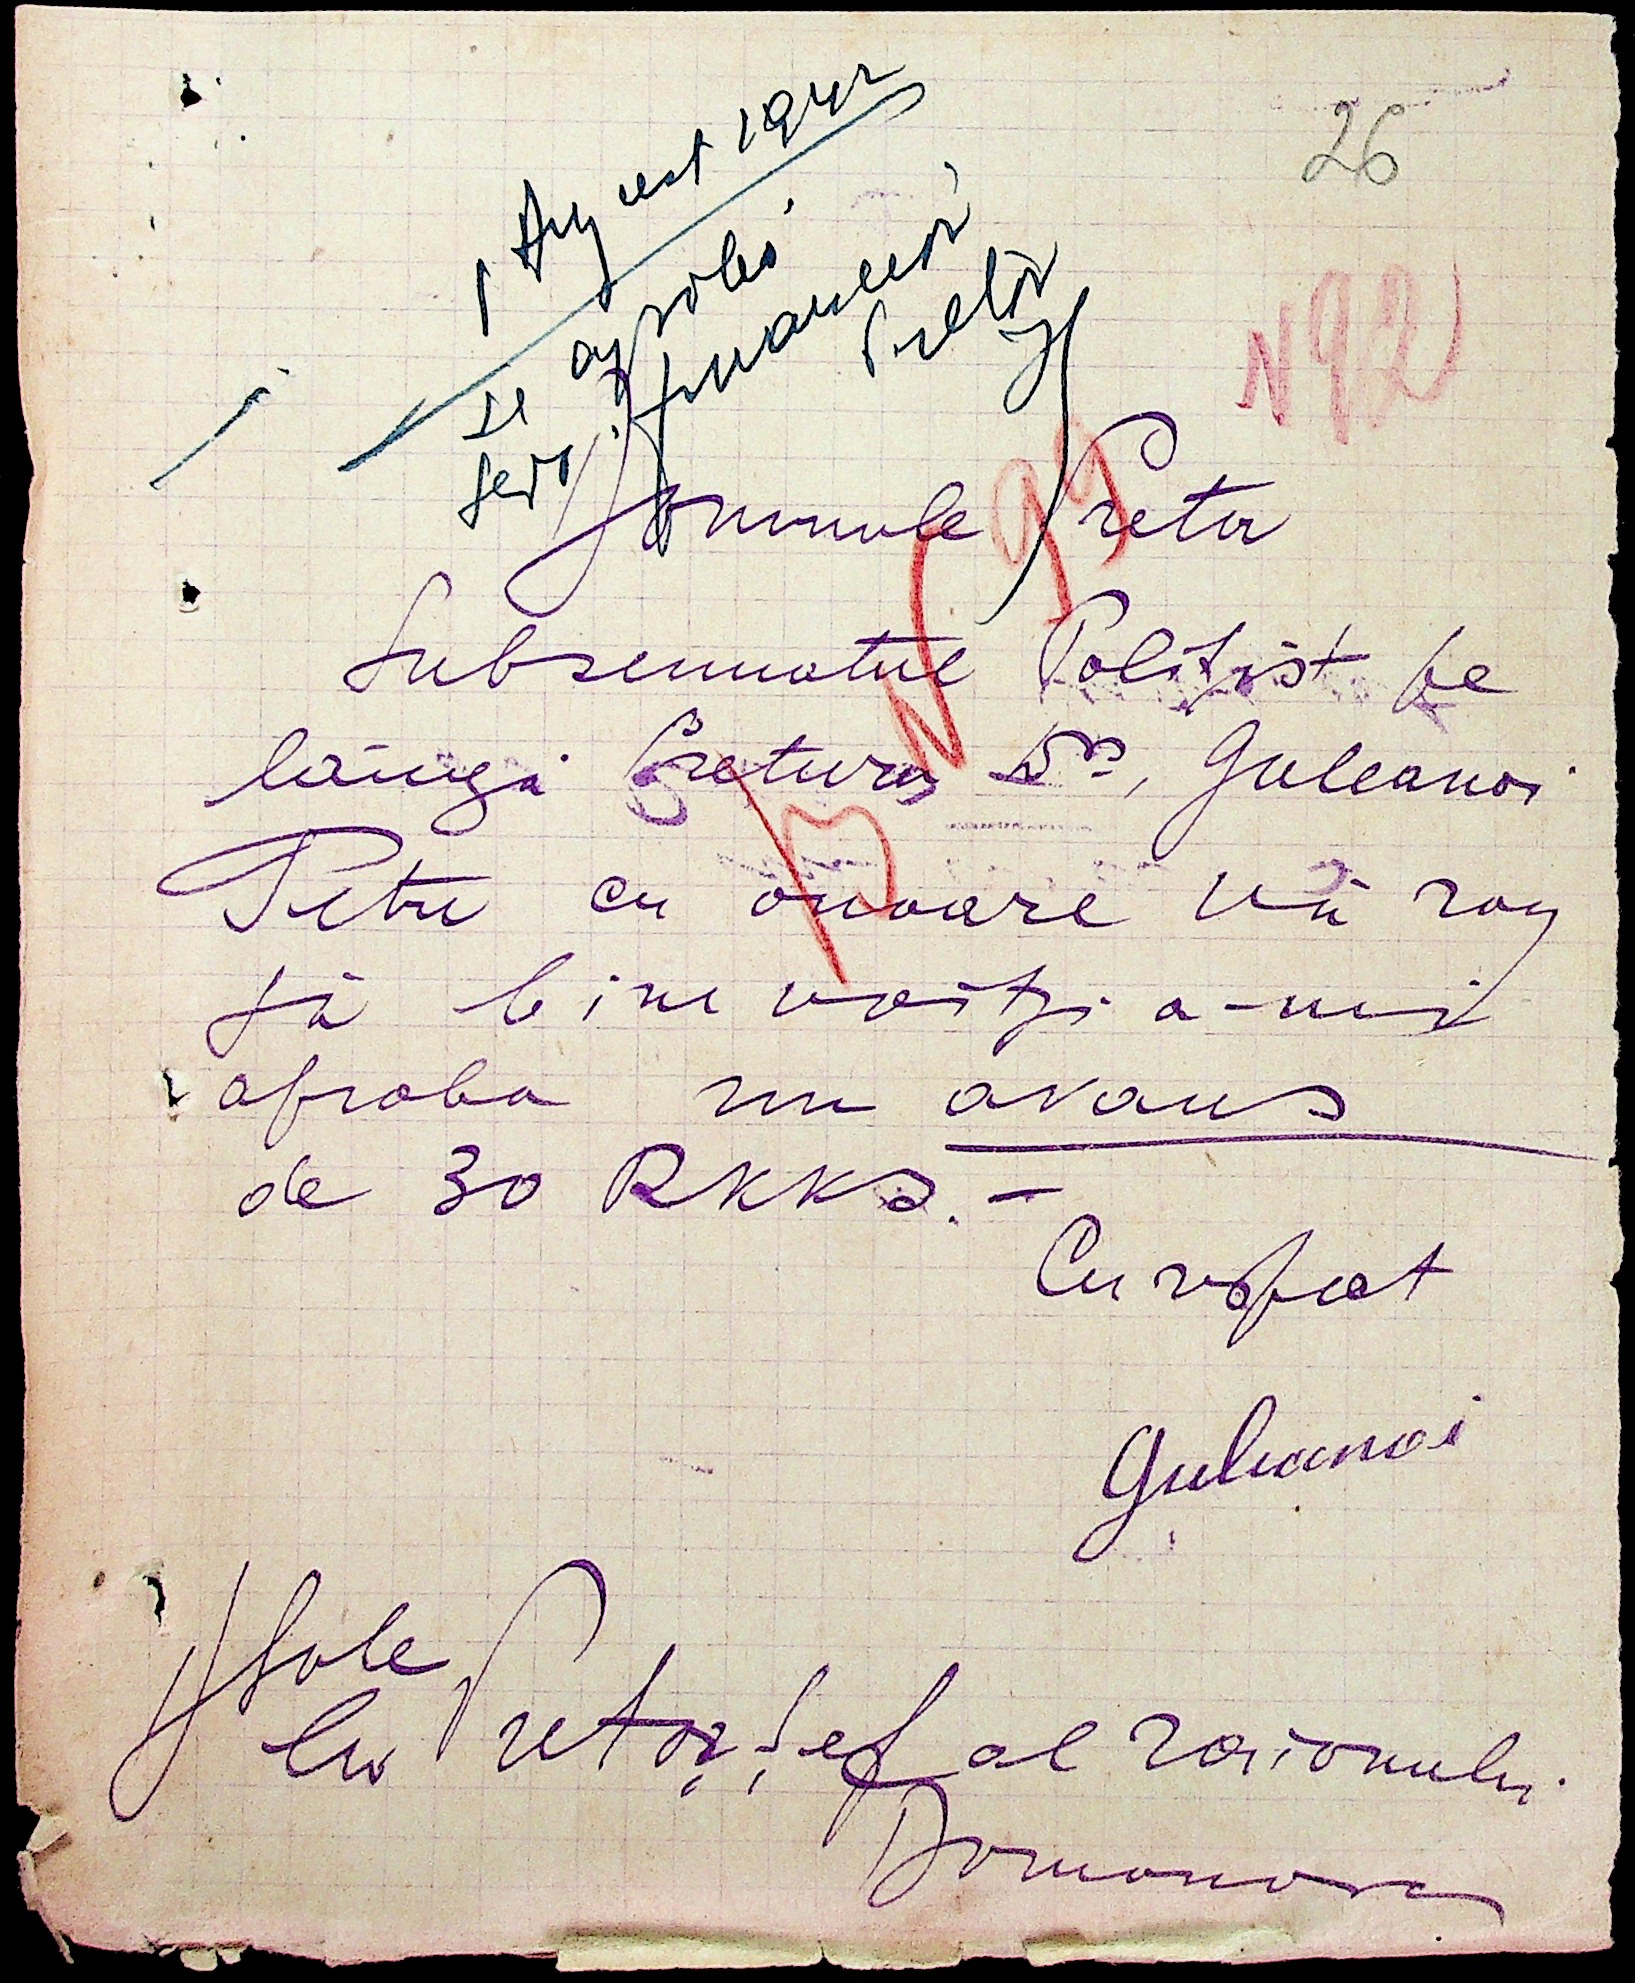 26
1 August 1942
se aprobă
Serv. financiar
Pretor
N 92
N 97
Domnule Pretor
Subsemnatul Polițist pe
lângă Pretura Dvs, Guleanoi
Petru cu onoare vă rog
să bine voiți a-mi
aproba un avans
de 30 RKKS. -
Cu respect
Guleanoi
D sale
Dlui Pretor, Șef al raionului
Domanovca